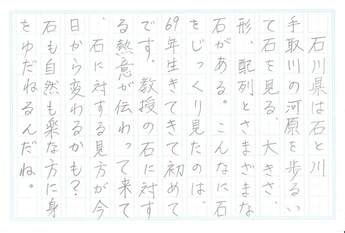 石川県は石と川
手取川の河原を歩るい
て石を見る、大きさ、
形、配列とさまざまな
石がある。こんなに石
をじっくり見たのは、
69年生きてきて初めて
です。教授の石に対す
る熱意が伝わって来て
、石に対する見方が今
日から変わるかも？
石も自然も楽な方に身
をゆだねるんだね。